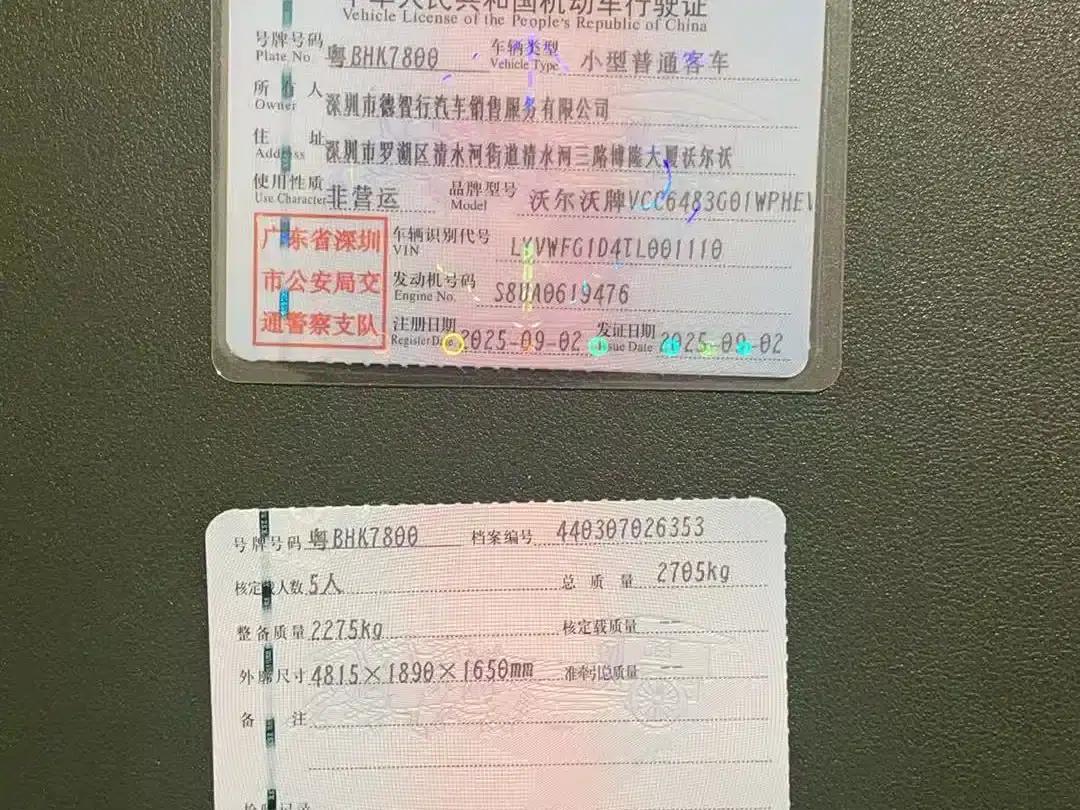 中华人民共和国机动车行驶证
Vehicle License of the People's Republic of China
号牌号码 Plate No 粤BHK7800 车辆类型 Vehicle Type 小型普通客车
所有人 Owner 深圳市德智行汽车销售服务有限公司
住址 Address 深圳市罗湖区清水河街道清水河三路博隆大厦沃尔沃
使用性质 Use Character 非营运 品牌型号 Model 沃尔沃牌VCC6483G01WPHEV
广东省深圳
市公安局交
通警察支队
车辆识别代号 VIN LYVWFG1D4TL001110
发动机号码 Engine No. S8UA0619476
注册日期 Register Date 2025-09-02 发证日期 Issue Date 2025-09-02
号牌号码 粤BHK7800 档案编号 440307026353
核定载人数 5人 总质量 2705kg
整备质量 2275kg 核定载质量 --
外廓尺寸 4815×1890×1650mm 准牵引总质量 --
备注
检验记录